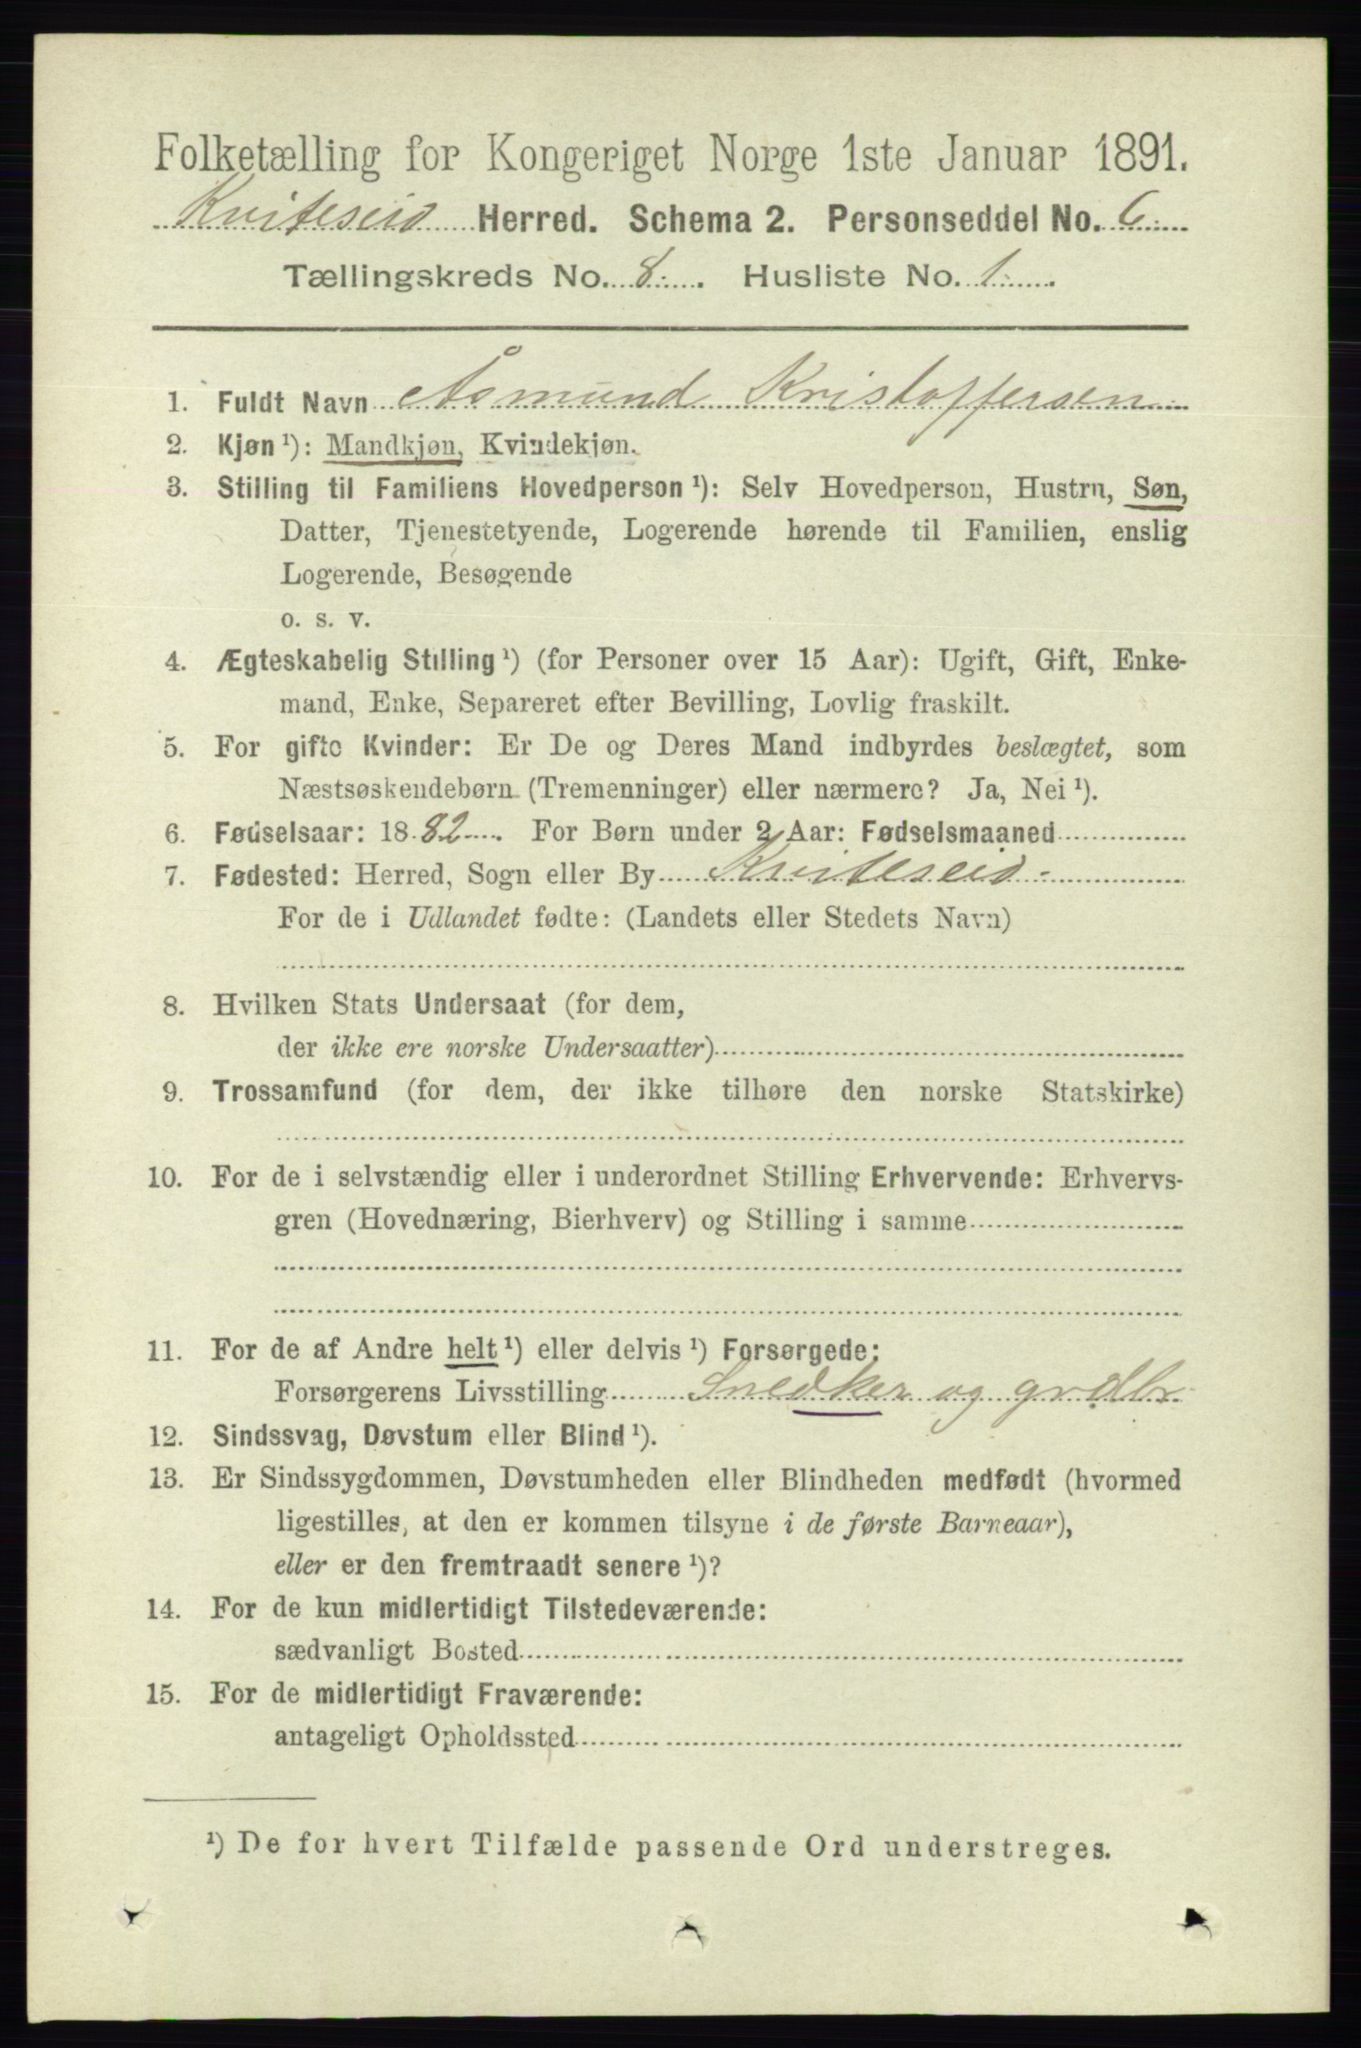 Folketælling for Kongeriget Norge 1ste Januar 1891.
Kviteseid Herred. Schema 2. Personseddel No. 6.
Tællingskreds No. 8. Husliste No. 1.
1. Fuldt Navn Åsmund Kristoffersen
2. Kjøn ¹): Mandkjøn, Kvindekjøn.
3. Stilling til Familiens Hovedperson ¹): Selv Hovedperson, Hustru, Søn,
Datter, Tjenestetyende, Logerende hørende til Familien, enslig
Logerende, Besøgende
o. s. v.
4. Ægteskabelig Stilling ¹) (for Personer over 15 Aar): Ugift, Gift, Enke-
mand, Enke, Separeret efter Bevilling, Lovlig fraskilt.
5. For gifte Kvinder: Er De og Deres Mand indbyrdes beslægtet, som
Næstsøskendebørn (Tremenninger) eller nærmere? Ja, Nei ¹).
6. Fødselsaar: 1882. For Børn under 2 Aar: Fødselsmaaned
7. Fødested: Herred, Sogn eller By Kviteseid
For de i Udlandet fødte: (Landets eller Stedets Navn)
8. Hvilken Stats Undersaat (for dem,
der ikke ere norske Undersaatter)
9. Trossamfund (for dem, der ikke tilhøre den norske Statskirke)
10. For de i selvstændig eller i underordnet Stilling Erhvervende: Erhvervs-
gren (Hovednæring, Bierhverv) og Stilling i samme
11. For de af Andre helt ¹) eller delvis ¹) Forsørgede:
Forsørgerens Livsstilling Snedker og grdbr.
12. Sindssvag, Døvstum eller Blind ¹).
13. Er Sindssygdommen, Døvstumheden eller Blindheden medfødt (hvormed
ligestilles, at den er kommen tilsyne i de første Barneaar),
eller er den fremtraadt senere ¹)?
14. For de kun midlertidigt Tilstedeværende:
sædvanligt Bosted
15. For de midlertidigt Fraværende:
antageligt Opholdssted
¹) De for hvert Tilfælde passende Ord understreges.